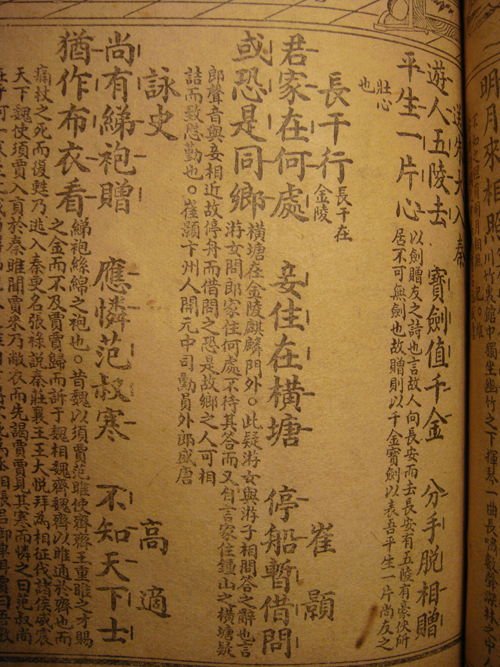 明月來相照
竹裏館中獨坐幽竹之下揮琴一曲長嘯數聲深林之中
送朱大入秦
遊人五陵去 寶劍值千金 分手脫相贈
平生一片心
以劍贈友之詩也言故人向長安而去長安有五陵有豪俠所
居不可無劍也故贈則以千金寶劍以表吾平生一片尚友之
壯心
也
長干行 長干在
金陵
崔顥
君家在何處 妾住在橫塘 停船暫借問
或恐是同鄉
橫塘在金陵麒麟門外。此疑游女與游子相問答之辭也言
游女問郎家住何處不待其答而又自言家住鍾山之橫塘疑
郎聲音與妾相近故停舟而借問之恐是故鄉之人可相
詰而致慇勤也。崔顥汴州人開元中司勳員外郎盛唐
詠史 高適
尚有綈袍贈 應憐范叔寒 不知天下士
猶作布衣看
綈袍絲綿之袍也。昔魏以須賈范睢使齊齊王重睢之才賜
之金而不及賈賈歸而訴于魏相魏齊魏齊以睢通於齊也而
痛杖之死而復甦乃逃入秦更名張祿說秦莊襄王王大悅拜為相征伐諸侯威震
天下魏使須賈入貢於秦睢聞賈來乃敝衣而先謁賈賈見其寒而憐之曰范叔尚